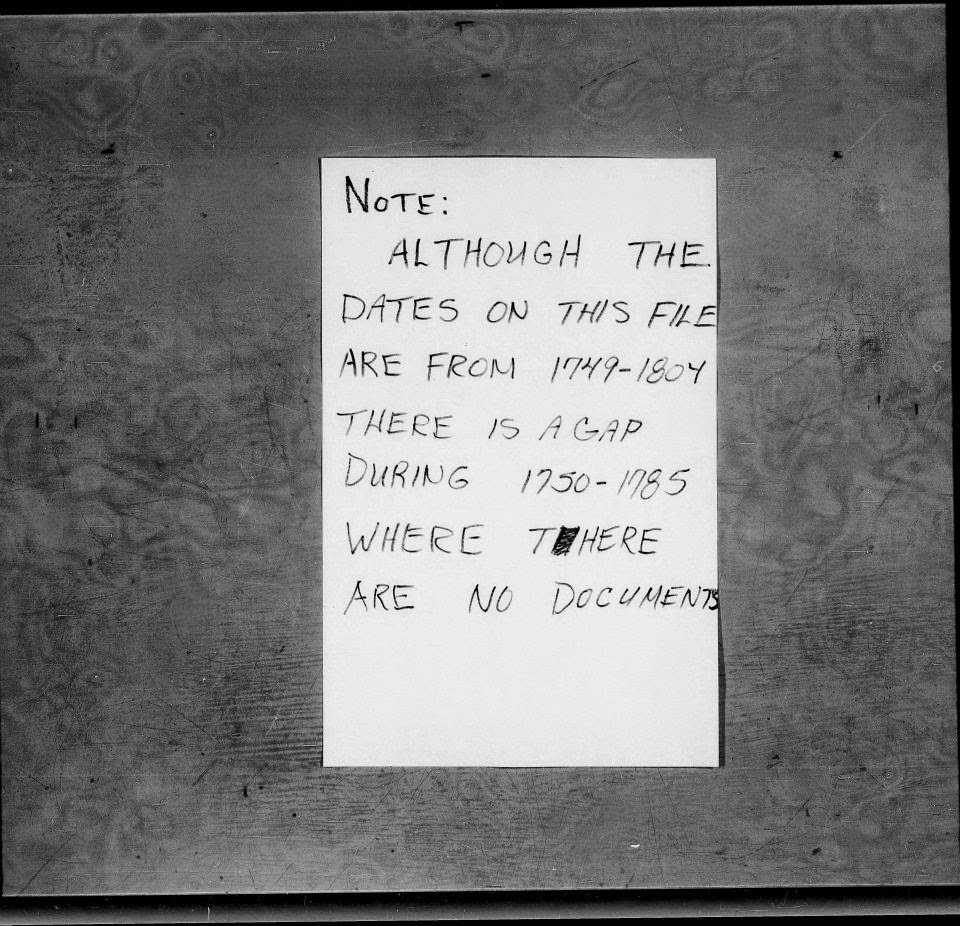 NOTE:
ALTHOUGH THE
DATES ON THIS FILE
ARE FROM 1749-1804
THERE IS A GAP
DURING 1750-1785
WHERE THERE
ARE NO DOCUMENTS